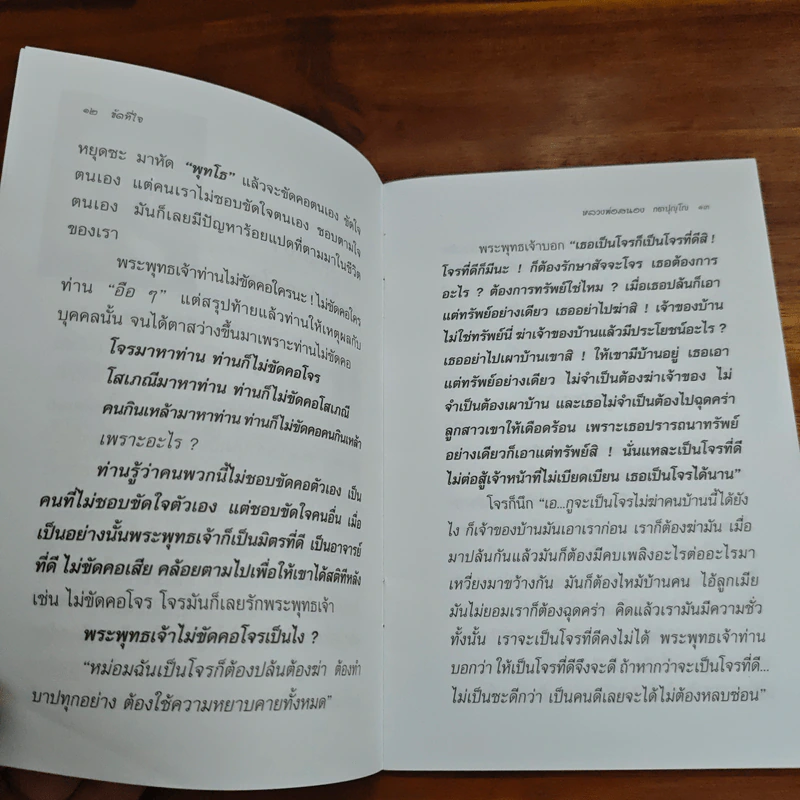 ๑๒ ขัดที่ใจ
หยุดซะ มาหัด “พุทโธ” แล้วจะขัดคอตนเอง ขัดใจ
ตนเอง แต่คนเราไม่ชอบขัดใจตนเอง ชอบตามใจ
ตนเอง มันก็เลยมีปัญหาร้อยแปดที่ตามมาในชีวิต
ของเรา
พระพุทธเจ้าท่านไม่ขัดคอใครนะ ! ไม่ขัดคอใคร
ท่าน “อือ ๆ” แต่สรุปท้ายแล้วท่านให้เหตุผลกับ
บุคคลนั้น จนได้ตาสว่างขึ้นมาเพราะท่านไม่ขัดคอ
โจรมาหาท่าน ท่านก็ไม่ขัดคอโจร
โสเภณีมาหาท่าน ท่านก็ไม่ขัดคอโสเภณี
คนกินเหล้ามาหาท่าน ท่านก็ไม่ขัดคอคนกินเหล้า
เพราะอะไร ?
ท่านรู้ว่าคนพวกนี้ไม่ชอบขัดคอตัวเอง เป็น
คนที่ไม่ชอบขัดใจตัวเอง แต่ชอบขัดใจคนอื่น เมื่อ
เป็นอย่างนั้นพระพุทธเจ้าก็เป็นมิตรที่ดี เป็นอาจารย์
ที่ดี ไม่ขัดคอเสีย คล้อยตามไปเพื่อให้เขาได้สติทีหลัง
เช่น ไม่ขัดคอโจร โจรมันก็เลยรักพระพุทธเจ้า
พระพุทธเจ้าไม่ขัดคอโจรเป็นไง ?
“หม่อมฉันเป็นโจรก็ต้องปล้นต้องฆ่า ต้องทำ
บาปทุกอย่าง ต้องใช้ความหยาบคายทั้งหมด”
หลวงพ่อสนอง กตปุญฺโญ ๑๓
พระพุทธเจ้าบอก “เธอเป็นโจรก็เป็นโจรที่ดีสิ !
โจรที่ดีก็มีนะ ! ก็ต้องรักษาสัจจะโจร เธอต้องการ
อะไร ? ต้องการทรัพย์ใช่ไหม ? เมื่อเธอปล้นก็เอา
แต่ทรัพย์อย่างเดียว เธออย่าไปฆ่าสิ ! เจ้าของบ้าน
ไม่ใช่ทรัพย์นี่ ฆ่าเจ้าของบ้านแล้วมีประโยชน์อะไร ?
เธออย่าไปเผาบ้านเขาสิ ! ให้เขามีบ้านอยู่ เธอเอา
แต่ทรัพย์อย่างเดียว ไม่จำเป็นต้องฆ่าเจ้าของ ไม่
จำเป็นต้องเผาบ้าน และเธอไม่จำเป็นต้องไปฉุดคร่า
ลูกสาวเขาให้เดือดร้อน เพราะเธอปรารถนาทรัพย์
อย่างเดียวก็เอาแต่ทรัพย์สิ ! นั่นแหละเป็นโจรที่ดี
ไม่ต่อสู้เจ้าหน้าที่ไม่เบียดเบียน เธอเป็นโจรได้นาน”
โจรก็นึก “เอ...กูจะเป็นโจรไม่ฆ่าคนบ้านนี้ได้ยัง
ไง ก็เจ้าของบ้านมันเอาเราก่อน เราก็ต้องฆ่ามัน เมื่อ
มาปล้นกันแล้วมันก็ต้องมีคบเพลิงอะไรต่ออะไรมา
เหวี่ยงมาขว้างกัน มันก็ต้องไหม้บ้านคน ไอ้ลูกเมีย
มันไม่ยอมเราก็ต้องฉุดคร่า คิดแล้วเรามันมีความชั่ว
ทั้งนั้น เราจะเป็นโจรที่ดีคงไม่ได้ พระพุทธเจ้าท่าน
บอกว่า ให้เป็นโจรที่ดีจึงจะดี ถ้าหากว่าจะเป็นโจรที่ดี...
ไม่เป็นซะดีกว่า เป็นคนดีเลยจะได้ไม่ต้องหลบซ่อน”